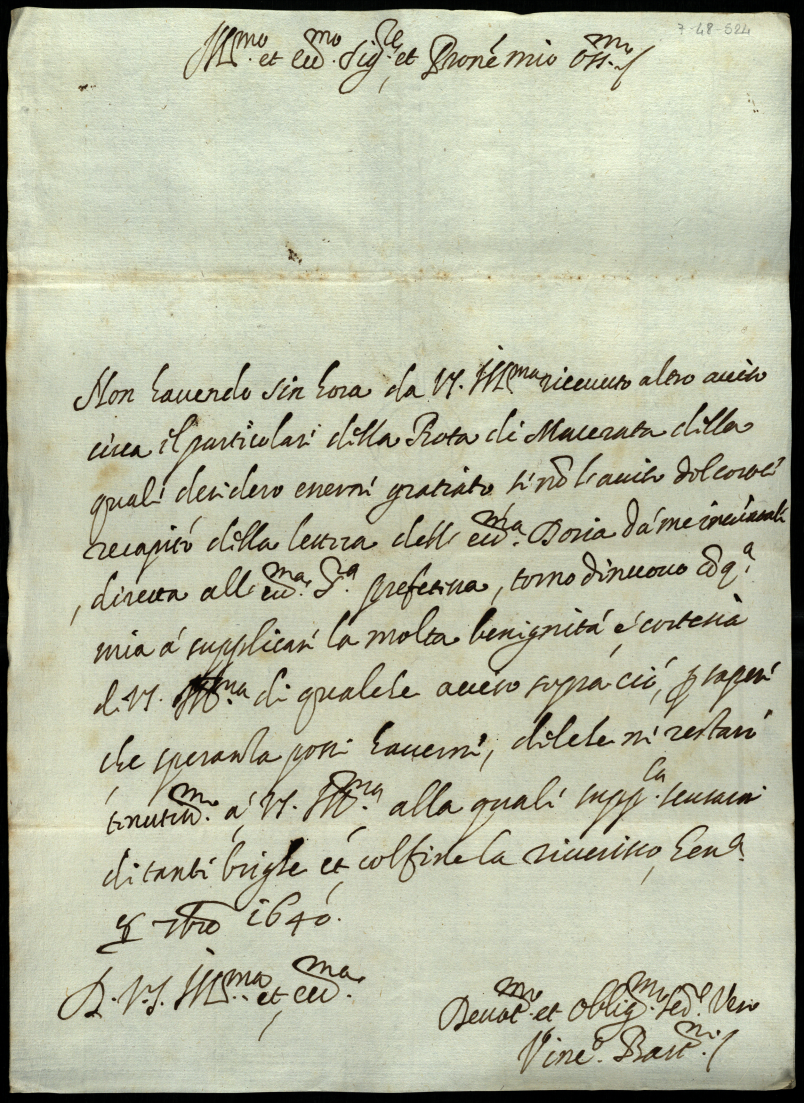 7-48-524
Ill.mo et ecc.mo Sig.re et Prone mio oss.mo
Non havendo sin hora da V.S. Ill.ma ricevuto altro aviso
circa il particolari della Rota di Macerata della
quali desidero esserni gratiato, si nō l'aviso del
recapito della lettera dell ecc.ma Doria da me inviatali
, diretta all ecc.ma S.ra prefetissa, torno di nuovo
mia á supplicari la molta benignitá é cortesia
di V.S. Ill.ma di qualche aviso sopra ciò, p saperi
che speranza possi haverni, dilche ni restarò
á V.S. Ill.ma alla quali supp.ca scusarmi
di tanti brighe et col fine la riverisco, Gen.a
7bro 1640.
D. V.S. Ill.ma et ecc.ma
Devot.mo et Oblig.mo Ser.e Vero
Vinc.o